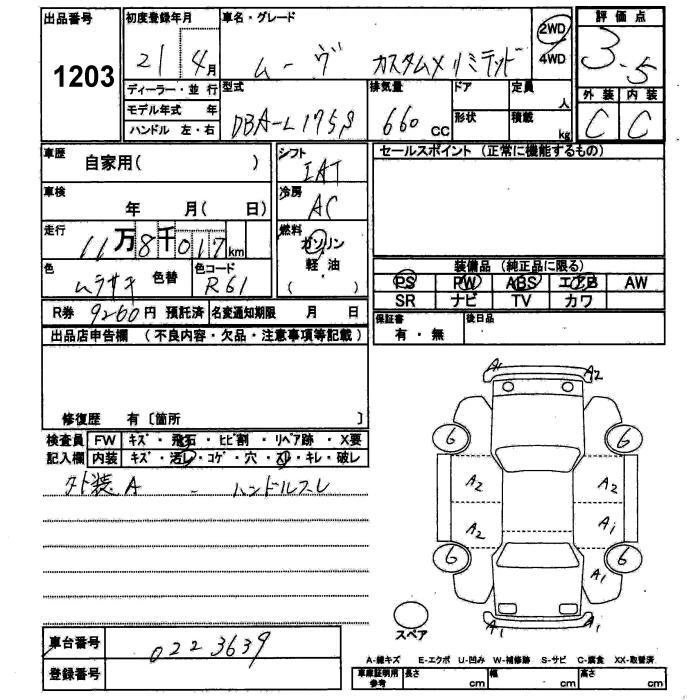 出品番号 1203
初度登録年月 21 4月
車名・グレード
ムーヴ カスタムXリミテッド
2WD
4WD
評価点 3.5
外装 内装
C C
ディーラー・並行
モデル年式 年
ハンドル 左・右
型式 DBA-L175S
排気量 660 CC
ドア
形状
定員 人
積載 kg
車歴 自家用( )
シフト IAT
セールスポイント (正常に機能するもの)
車検 年 月( 日)
冷房 AC
走行 11万8千017km
燃料 ガソリン
軽・油
( )
色 ムラサキ 色替
色コード R61
装備品 (純正品に限る)
PS PW ABS エアB AW
SR ナビ TV カワ
R券 9260円 預託済 名変通知期限 月 日
保証書 有・無
後日品
出品店申告欄 (不良内容・欠品・注意事項等記載)
修復歴 有〔箇所 〕
検査員 FW キズ・飛石・ヒビ割・リペア跡・X要
記入欄 内装 キズ・汚レ・コゲ・穴・スレ・キレ・破レ
外装A - ハンドルスレ
A1 A2
6 6
A2 A2
A2 A1
6 6
A1
A1 A1
スペア
車台番号 0223639
登録番号
A-線キズ E-エクボ U-凹み W-補修跡 S-サビ C-腐食 XX-取替済
車庫証明用参考 長さ cm 幅 cm 高さ cm